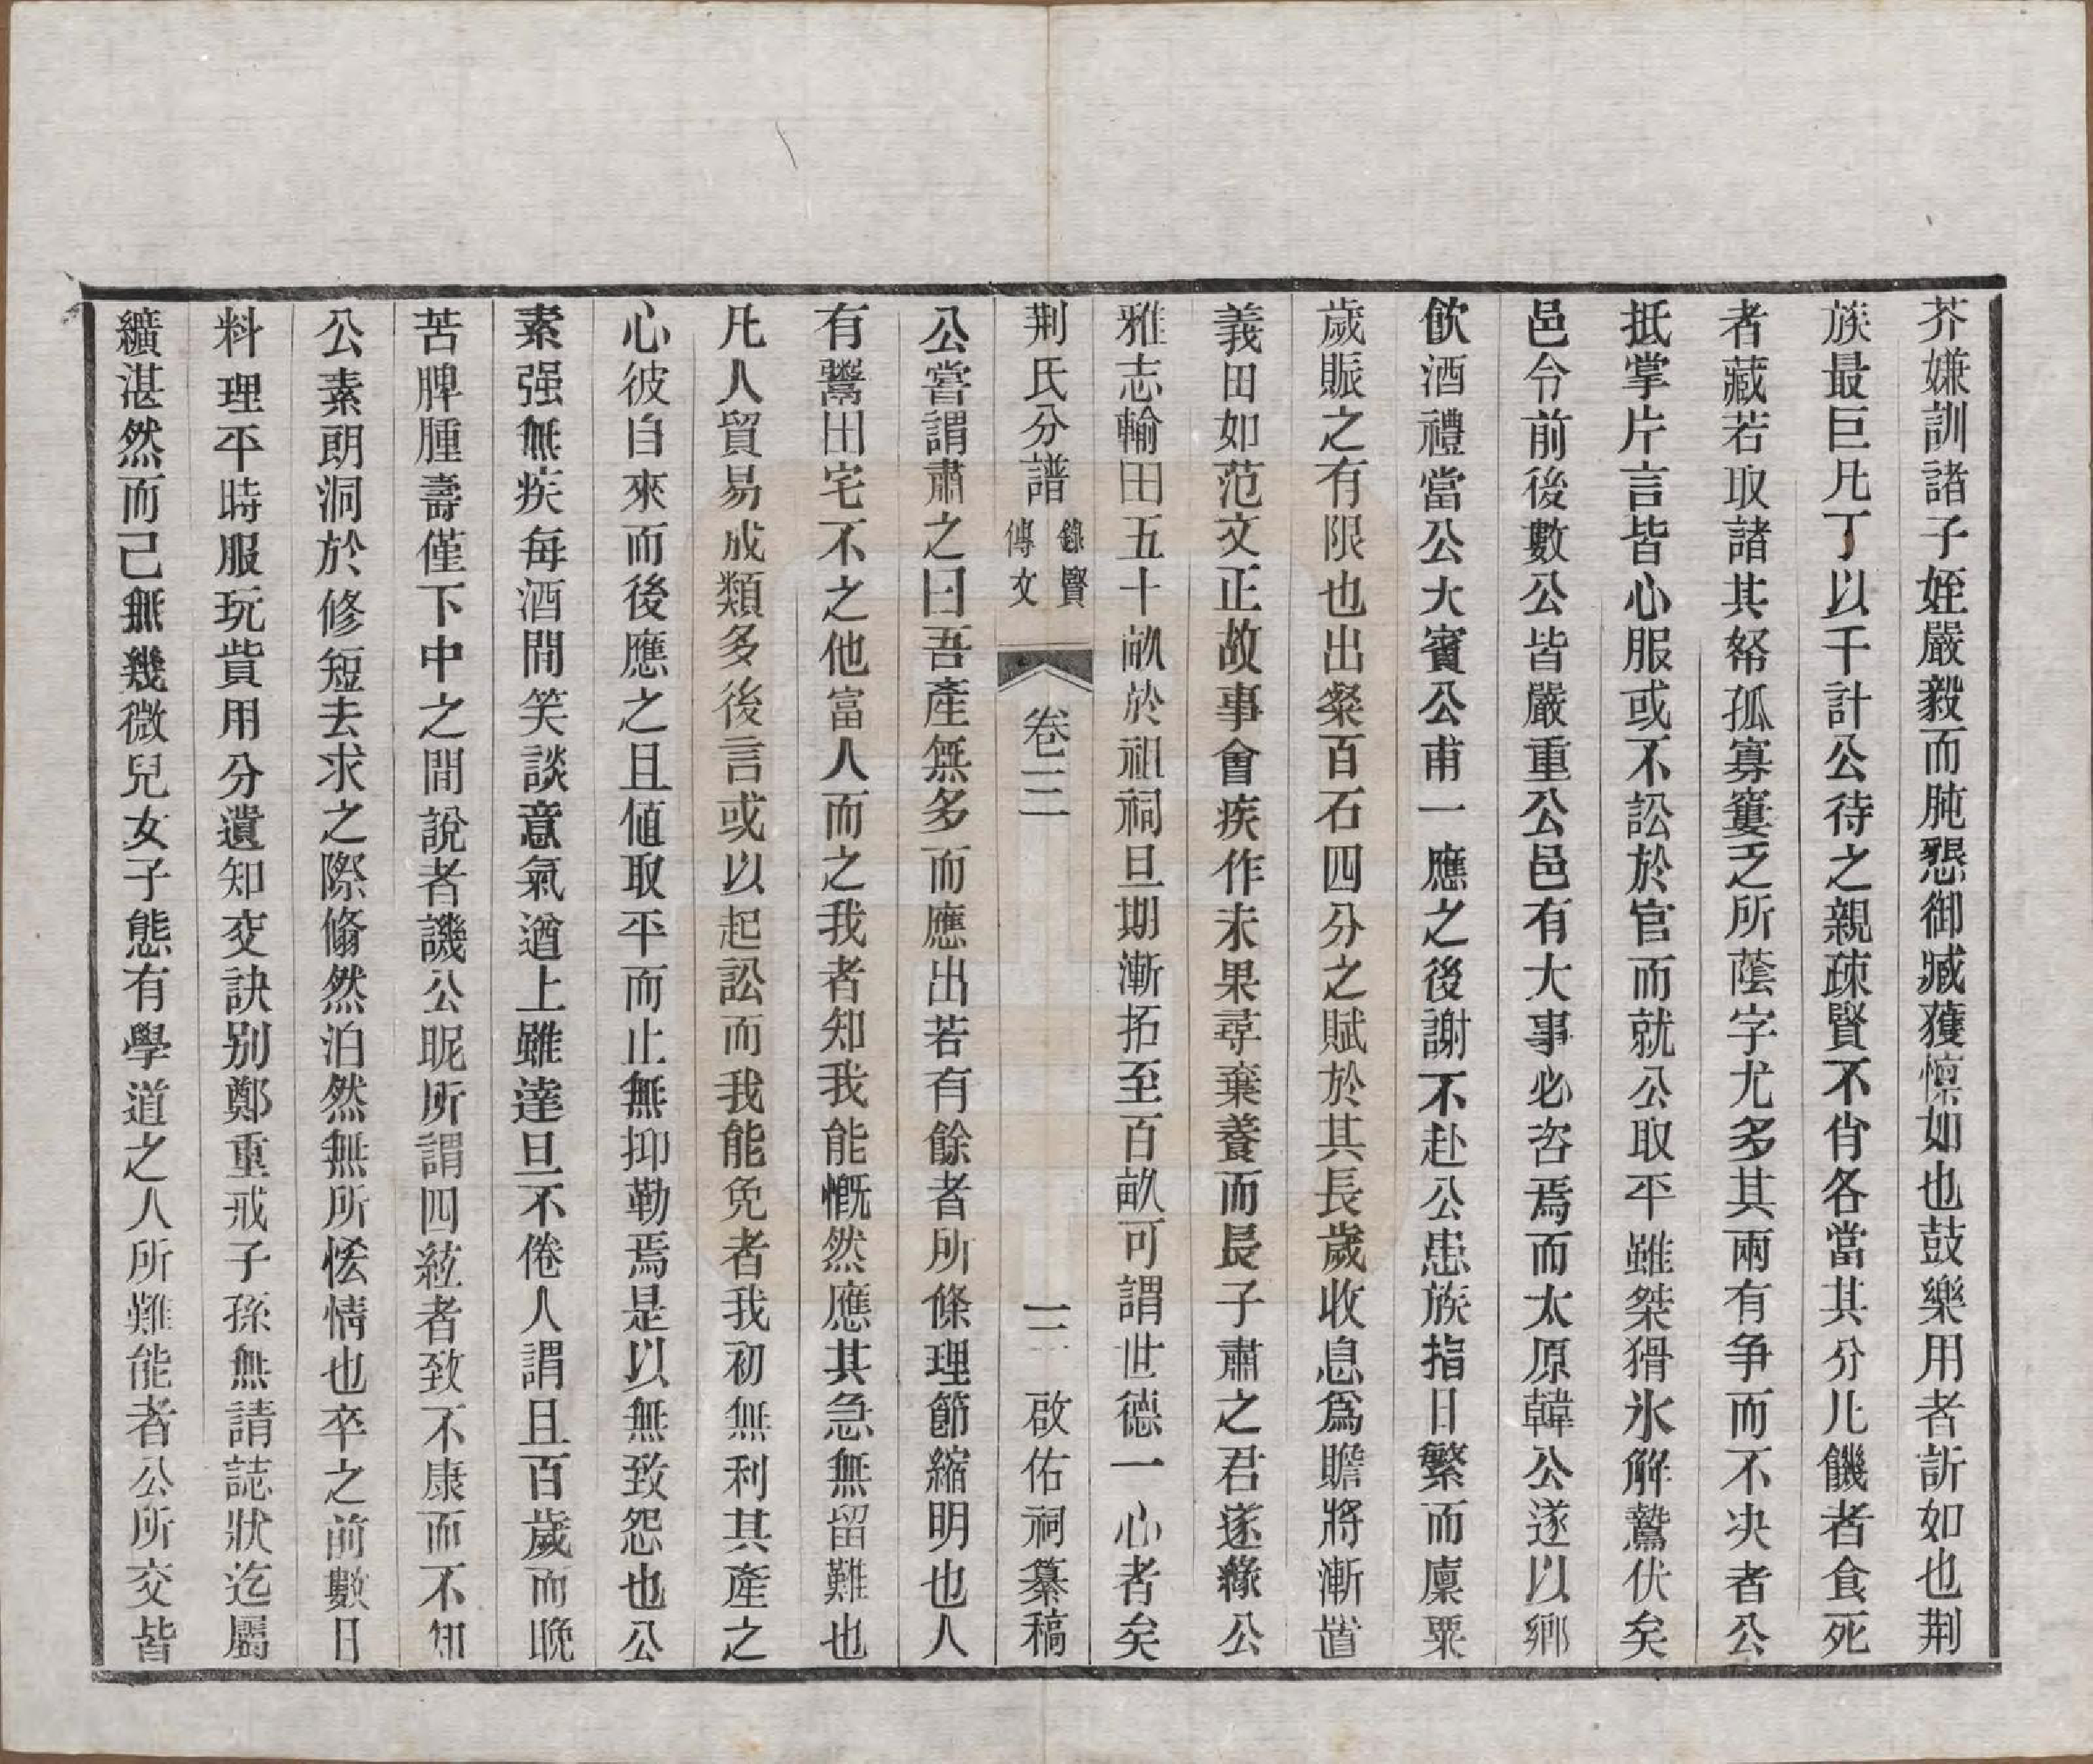 芥嫌訓諸子姪嚴毅而肫懇御臧獲懍如也鼓樂用者訢如也荆
族最巨凡丁以千計公待之親疎賢不肖各當其分凡饑者食死
者藏若取諸其帑孤寡窶乏所蔭字尤多其兩有争而不决者公
抵掌片言皆心服或不訟於官而就公取平雖桀猾氷解鷙伏矣
邑令前後數公皆嚴重公邑有大事必咨焉而太原韓公遂以鄉
飲酒禮當公大賓公甫一應之後謝不赴公患族指日繁而廩粟
歲賑之有限也出粲百石四分之賦於其長歲收息爲贍將漸啚
義田如范文正故事會疾作未果尋棄養而長子肅之君遂緣公
雅志輸田五十畝於祖祠旦期漸拓至百畝可謂世德一心者矣
荆氏分譜 錄賢傳文 卷三 三 啟佑祠纂稿
公嘗謂肅之曰吾產無多而應出若有餘者所條理節縮明也人
有鬻田宅不之他富人而之我者知我能慨然應其急無留難也
凡人貿易成類多後言或以起訟而我能免者我初無利其產之
心彼自來而後應之且値取平而止無抑勒焉是以無致怨也公
素强無疾每酒間笑談意氣遒上雖達旦不倦人謂且百歲而晩
苦脾腫壽僅下中之間說者譏公昵所謂四紘者致不康而不知
公素朗洞於修短去求之際翛然泊然無所恡情也卒之前數日
料理平時服玩貲用分遺知交訣别鄭重戒子孫無請誌狀迄屬
纊湛然而已無幾微兒女子態有學道之人所難能者公所交皆